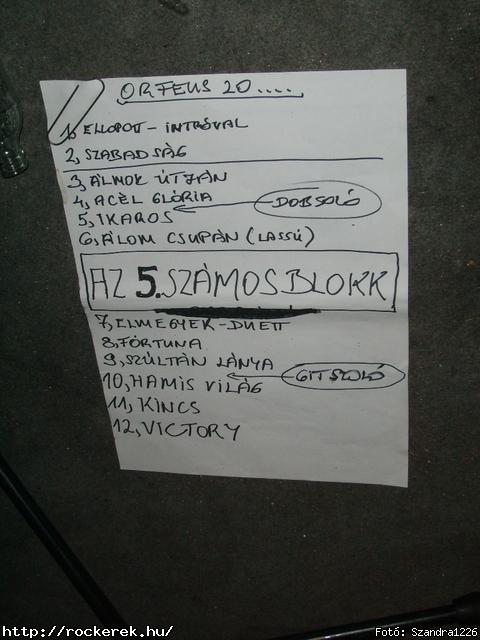 ORFEUS 20.....
1, ELLOPOTT - INTRÓVAL
2, SZABADSÁG
3, ÁLMOK ÚTJÁN
4, ACÉL GLÓRIA
DOBSZOLÓ
5, IKAROS
6, ÁLOM CSUPÁN (LASSÚ)
AZ 5. SZÁMOS BLOKK
7, ELMEGYEK - DUETT
8, FORTUNA
9, SZULTÁN LÁNYA
GIT SZOLÓ
10, HAMIS VILÁG
11, KINCS
12, VICTORY
http://rockerek.hu/
Fotó: Szandra1226